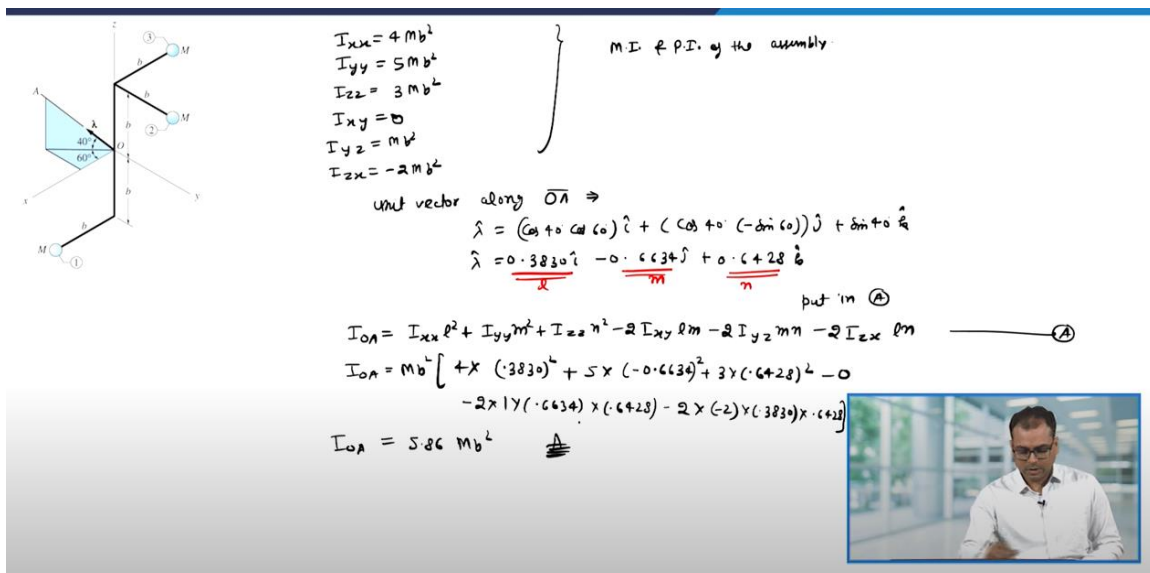 z
③
M
b
b
A
M
②
λ
b
40°
O
60°
b
x
y
b
M
①
Ixx = 4 Mb²
Iyy = 5 Mb²
Izz = 3 Mb²
Ixy = 0
Iyz = Mb²
Izx = -2Mb²
M.I. & P.I. of the assembly.
unit vector along OA ⇒
λ̂ = (Cos 40 Cos 60) î + (Cos 40 (-Sin 60)) ĵ + Sin 40 k̂
λ̂ = 0.3830 î - 0.6634 ĵ + 0.6428 k̂
l m n
put in Ⓐ
IOA = Ixx l² + Iyy m² + Izz n² - 2 Ixy lm - 2 Iyz mn - 2 Izx ln ——— Ⓐ
IOA = Mb² [ 4 × (.3830)² + 5 × (-0.6634)² + 3 × (.6428)² - 0
- 2 × 1 × (.6634) × (.6428) - 2 × (-2) × (.3830) × .6428]
IOA = 5.86 Mb²